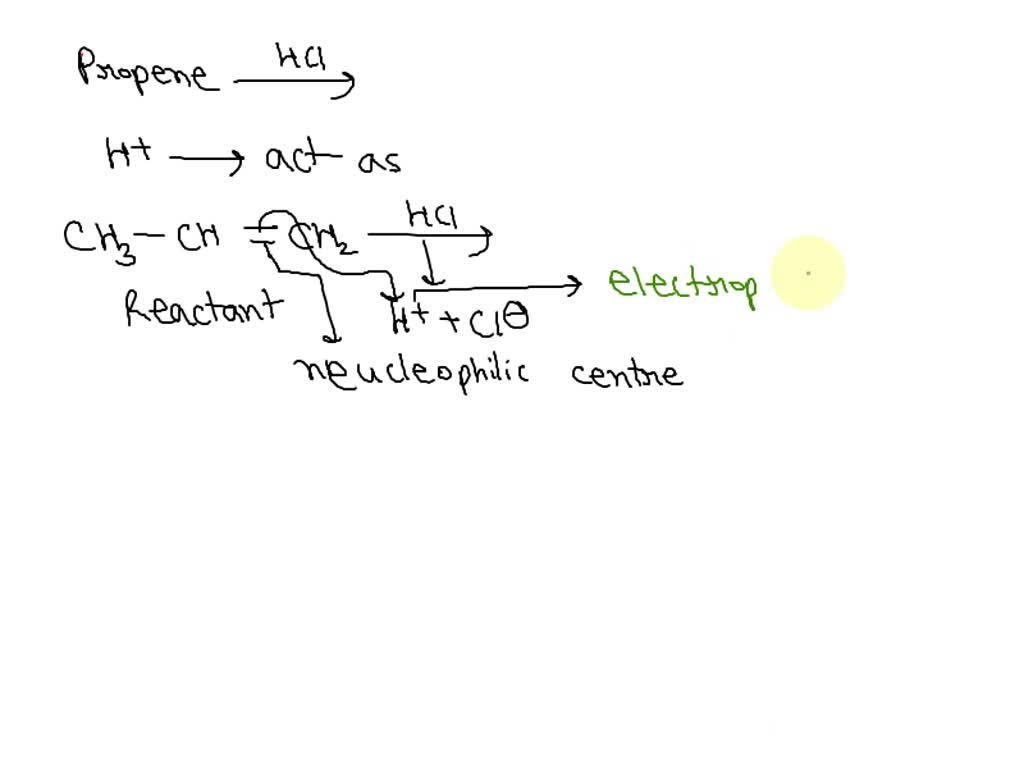 Propene HCl →
H+ → act as
CH3 – CH = CH2 HCl →
Reactant H+ + Cl⊖ → electrop
neucleophilic centre